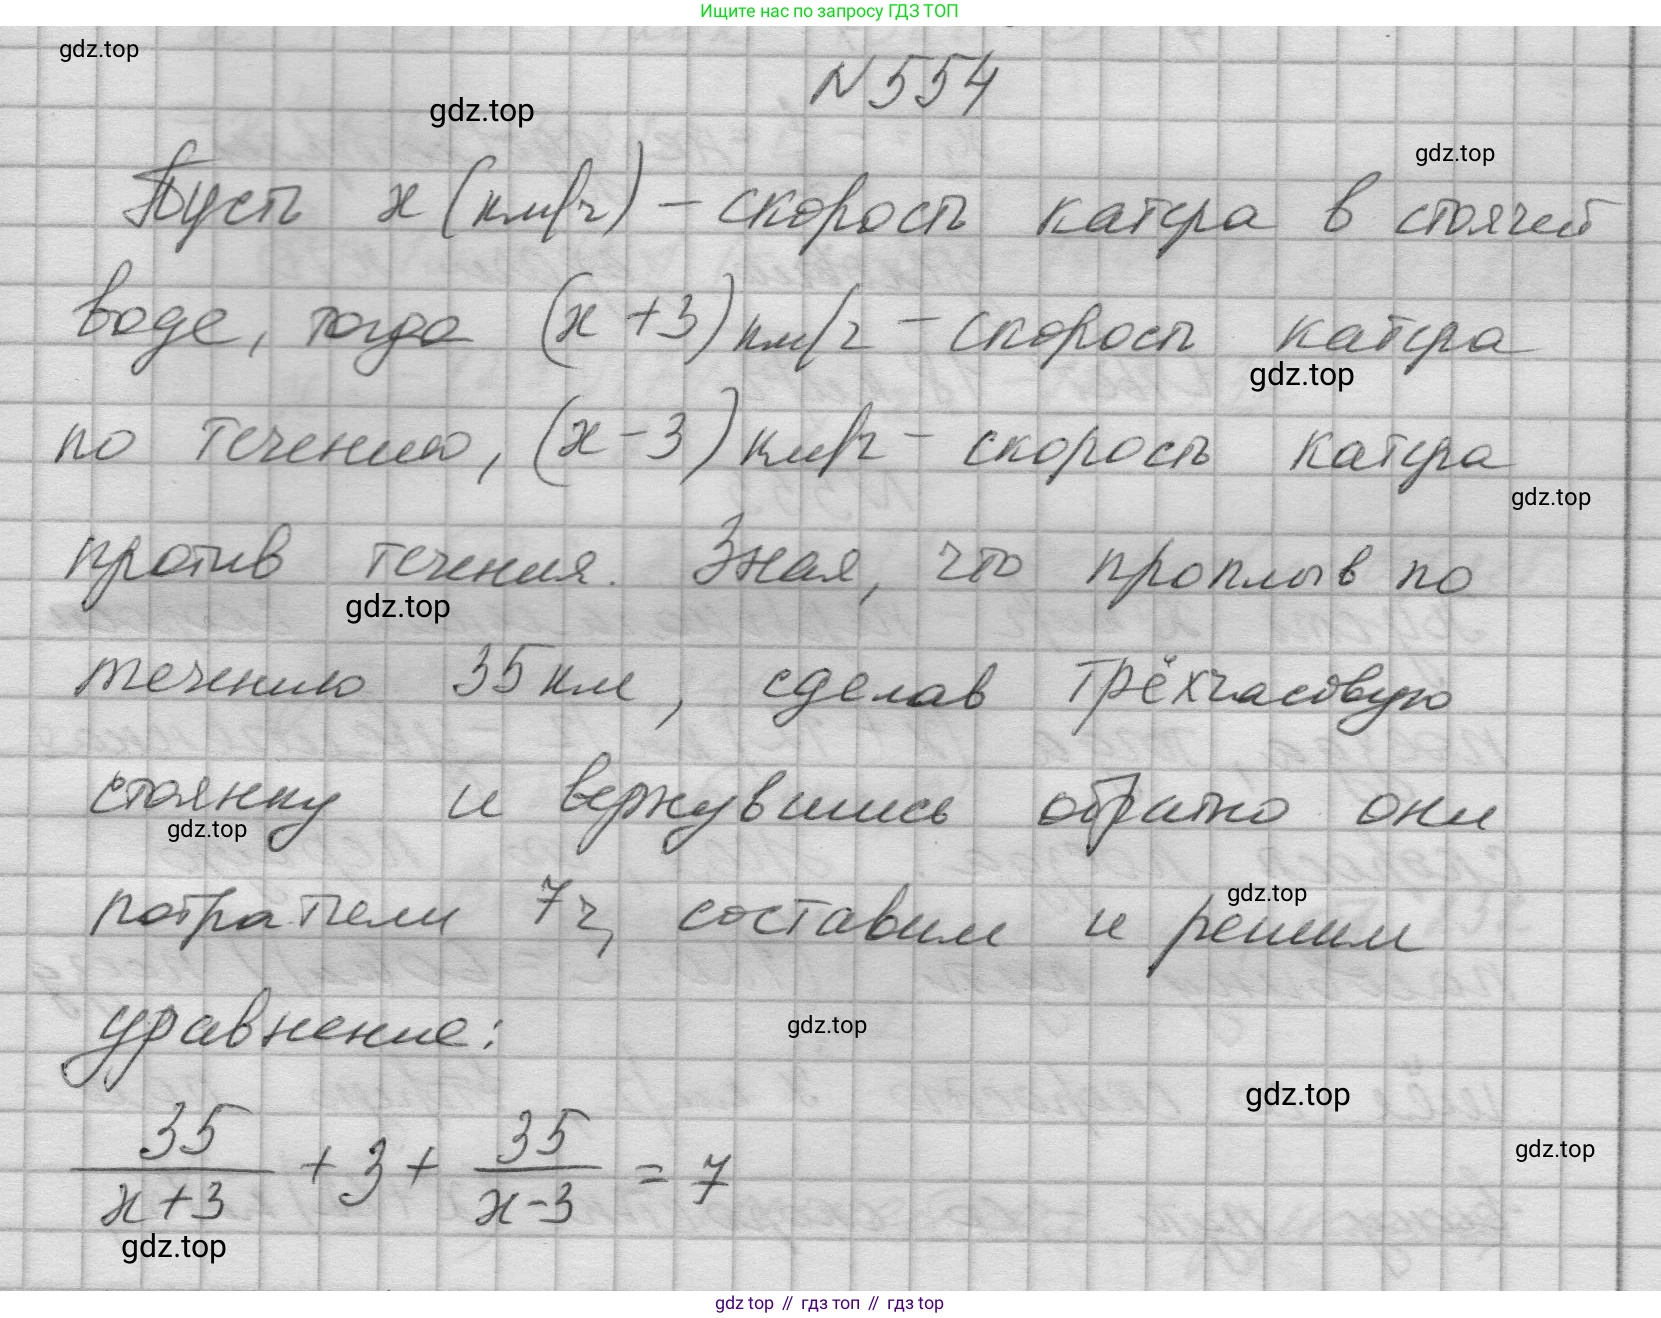 Ищите нас по запросу ГДЗ ТОП
gdz.top
N 554
gdz.top
gdz.top
Пусть x (км/ч) – скорость катера в стоячей
воде, тогда (x + 3) км/ч – скорость катера
gdz.top
по течению, (x – 3) км/ч – скорость катера
gdz.top
против течения. Зная, что проплыв по
gdz.top
течению 35 км, сделав трёхчасовую
стоянку и вернувшись обратно они
gdz.top
gdz.top
потратили 7ч, составим и решим
уравнение:
gdz.top
gdz.top
35/(x+3) + 3 + 35/(x-3) = 7
gdz.top
gdz.top
gdz top // гдз топ // гдз top